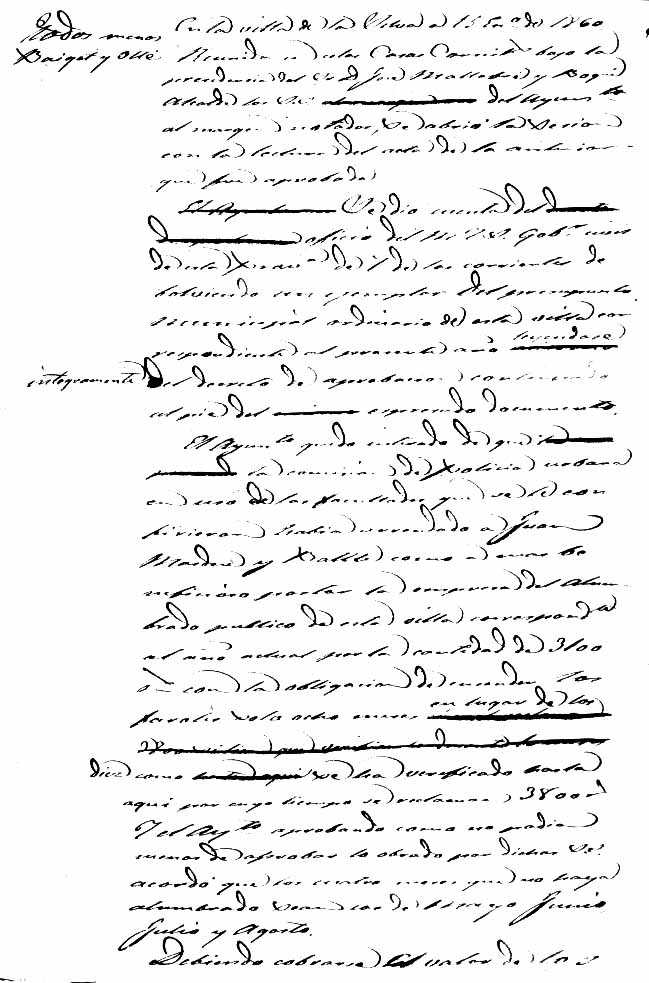 todos menos
Baiget y Ollé
En la villa de la Selva a 15 En.o de 1860
Reunidos en estas Casas Consist.s bajo la
presidencia del Sr. D. José Mallafré y Roger
Alcalde los Sres del Ayunt.to
al margen notados, se abrió la sesion
con la lectura del acta de la anterior
que fué aprobada
Se dio cuenta del
oficio del M. I. S. Gob.r civil
de esta Prov.a de 7 de los corrientes de
bolviendo un ejemplar del presupuesto
municipal ordinario de esta villa cor
respondiente al presente año leyendose
integramente
del decreto de aprobacion continuado
al pie del espresado documento.
El Ayunt.to quedó enterado de que
la comision de Policia urbana
en uso de las facultades que se le con
firieron habia arrendado a Juan
y como a mas be
neficioso postor la empresa del Alum-
brado publico de esta villa correspond.te
al año actual por la cantidad de 3100
rs con la obligacion de encender los
faroles solo ocho meses en lugar de los
diez como se ha verificado hasta
aqui por cuyo tiempo se reclaman 3800 rs
Y el Ay.to aprobando como no podia
menos de aprobar lo obrado por dichos Sres
acordó que los cuatro meses que no haya
alumbrado sean los de Mayo Junio
Julio y Agosto.
Debiendo cobrarse el valor de los